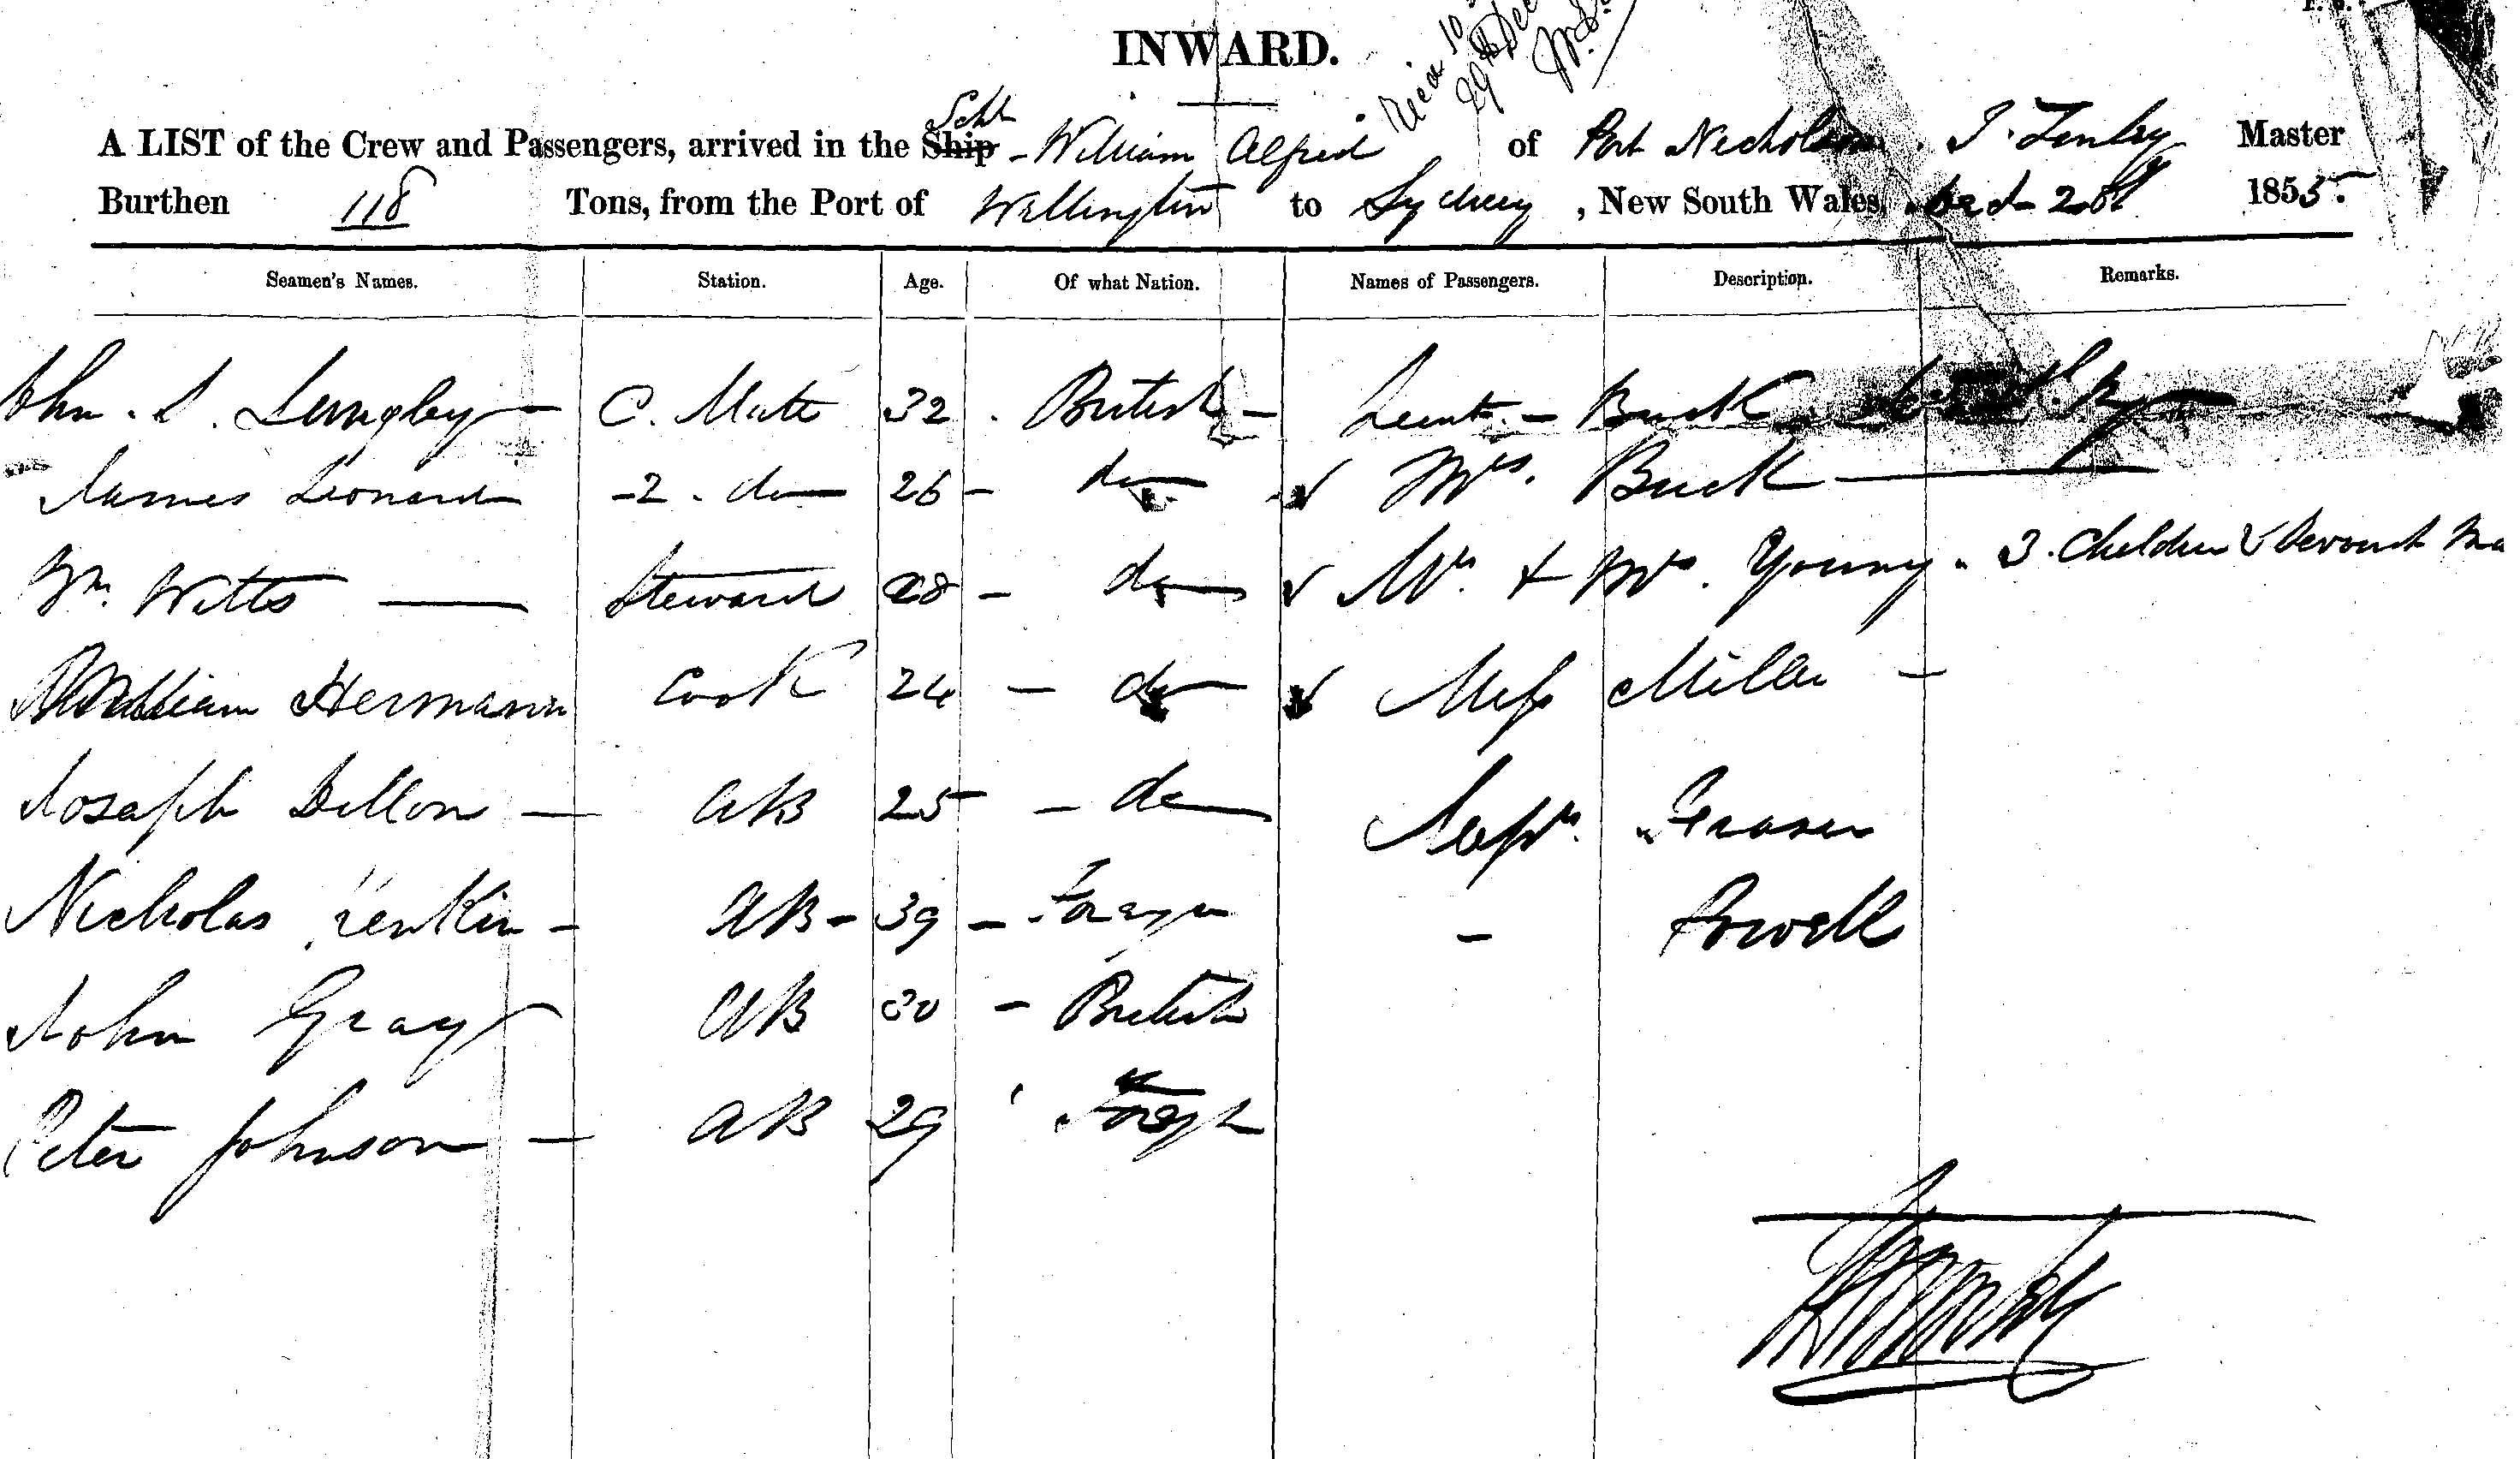 INWARD.
A LIST of the Crew and Passengers, arrived in the Ship Schr William Alfred of Port Nicholson. Master
Burthen 118 Tons, from the Port of Wellington to Sydney, New South Wales, 28th 1855.
Seamen's Names. Station. Age. Of what Nation. Names of Passengers. Description. Remarks.
John. S. Langley - C. Mate 32. British - Lieut. - Buck
James Leonard - 2. do 26 - do Mrs. Buck
Wm. Witts Steward 28 - do Mr. & Mrs. Young. 3. Children & Servant
William Hermann Cook 24 - do Miss Miller -
Joseph Dillon - AB 25 - do Messrs. Fraser
Nicholas - AB - 39 - Foreign - Powell
John Gray AB 30 - British
Peter Johnson - AB 29 Foreign